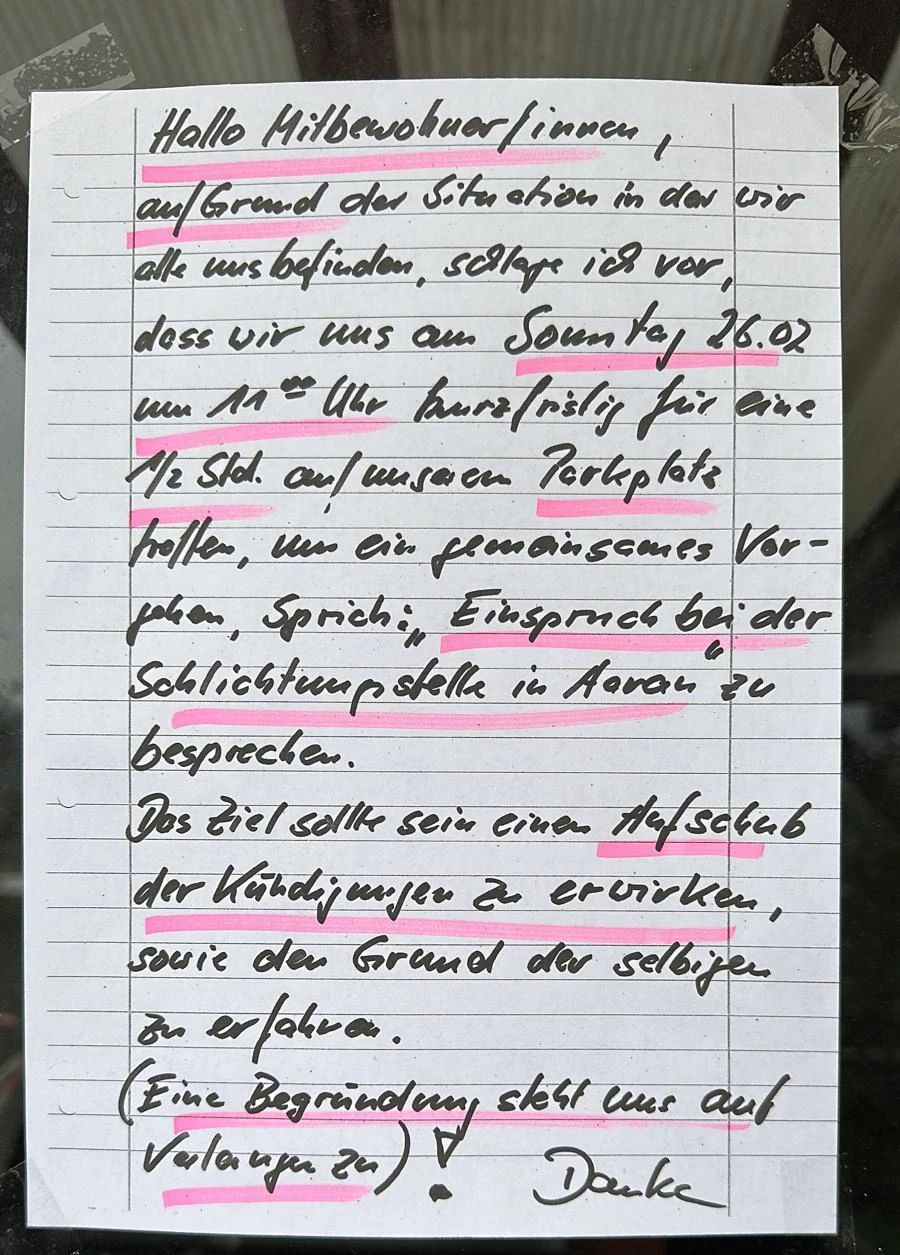 Hallo Mitbewohner/innen,
auf Grund der Situation in der wir
alle uns befinden, schlage ich vor,
dass wir uns am Sonntag 26.02
um 11⁰⁰ Uhr kurzfristig für eine
1/2 Std. auf unserem Parkplatz
treffen, um ein gemeinsames Vor-
gehen, Sprich: „Einspruch bei der
Schlichtungsstelle in Aarau“ zu
besprechen.
Das Ziel sollte sein einen Aufschub
der Kündigungen zu erwirken,
sowie den Grund der selbigen
zu erfahren.
(Eine Begründung steht uns auf
Verlangen zu)!
Danke